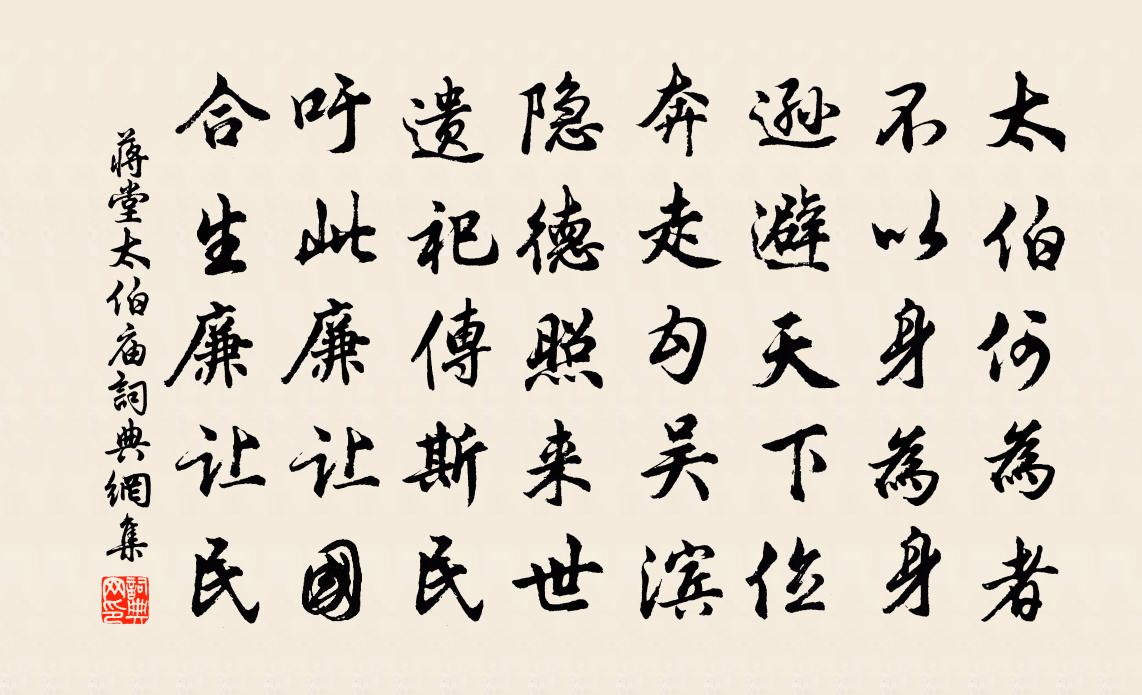 太伯何為者
不以身為身
遜避天下位
奔走勾吴滨
隐德照来世
遗祀傳斯民
吁此廉让國
合生廉让民
蒋堂太伯庙詞典網集
詞典網印